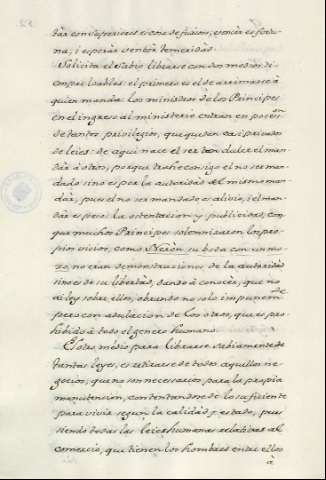 dár con superiores es cosa de juicio, vencer es fortu-
na, i esperár vencér temeridád.
Solicita el sabio librarse con dos medios siem-
pre loables: el primero es el de arrimarse á
quien manda: los ministros de los Principes
en el ingreso al ministerio entran en posesn.
de tantos privilegios, que quedan casi privados
de leies: de aqui nace el ser tan dulce el man-
dár á otros, porque trahe consigo el no ser man-
dado sino es por la autoridad del mismo man-
dár, pues el no ser mandado es alivio, i el man-
dár es pena: la ostentacion y publicidad, con
que muchos Principes solemnizaron los pro-
pios vicios, como Nerón su boda con un mo-
zo, no eran demonstraciones de la autoridad
sino es de su libertad, dando á conocér, que no
ai ley sobre ellos, obrando no solo impunemte.
pero con adulacion de los otros, que es pro-
hibido á todo el genero humano.
El otro médio para librarse sabiamente de
tantas leyes, es retirarse de todos aquellos ne-
gocios, que no son necesarios para la propia
manutension, contentandose de lo suficiente
para vivir segun la calidad, y estado, pues
siendo todas las leies humanas relatibas al
comercio, que tienen los hombres entre ellos